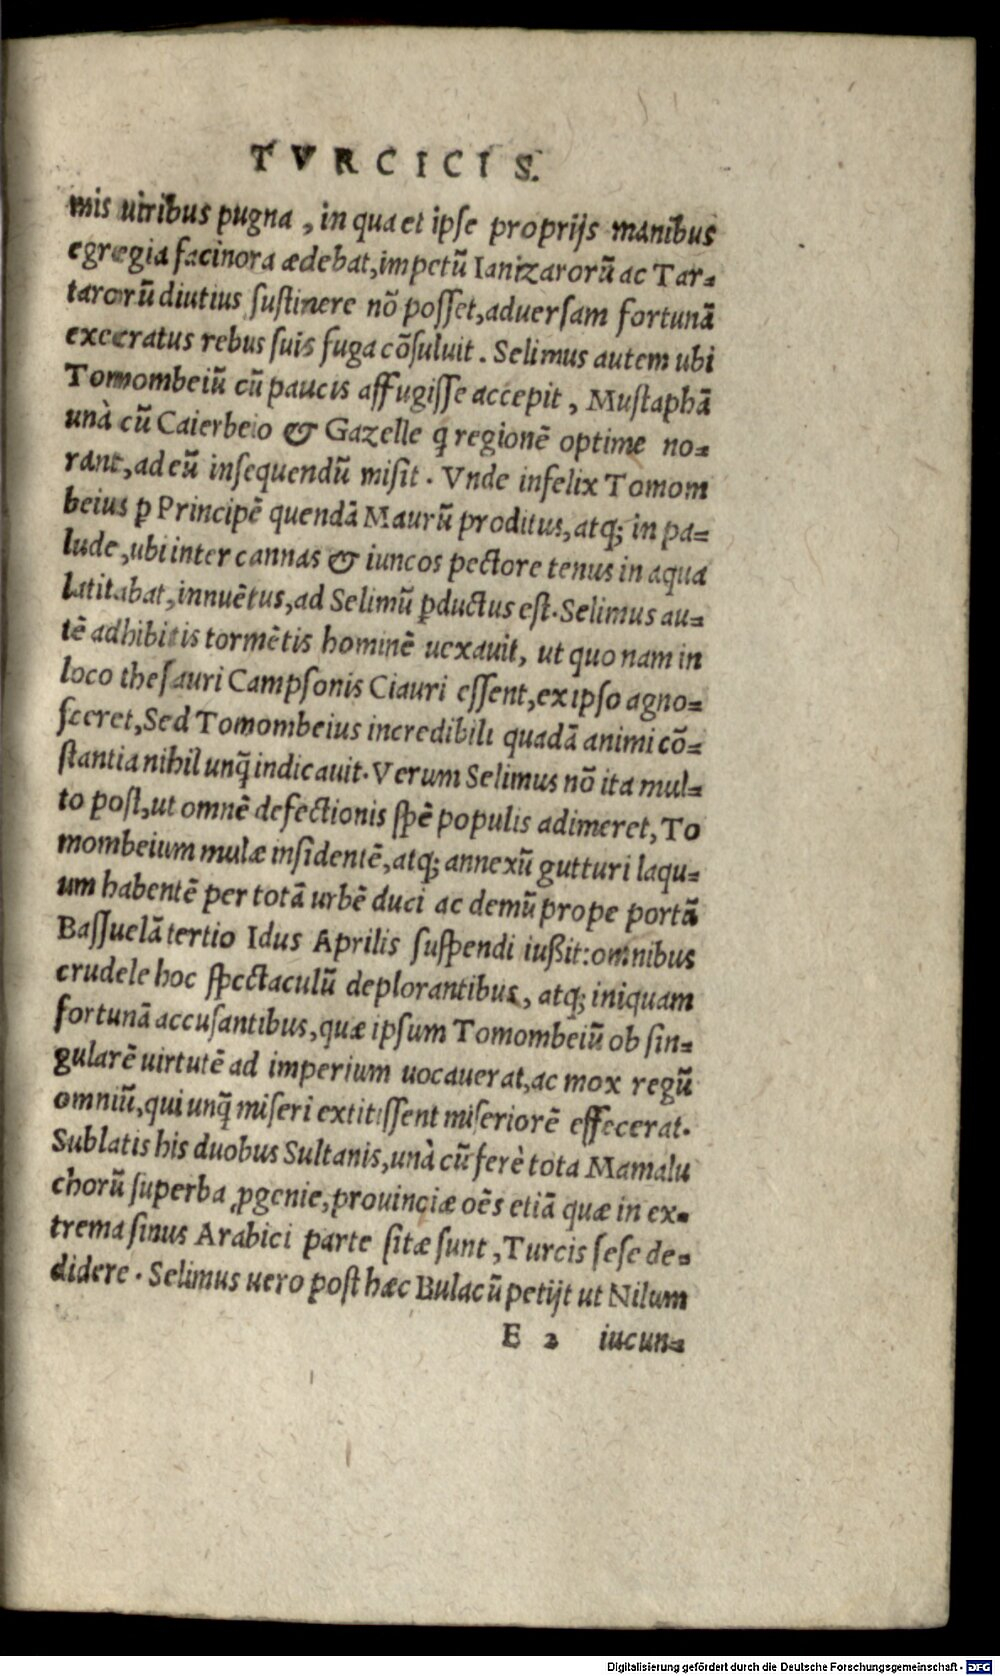 TVRCICIS.
mis uiribus pugna, in qua et ipse proprijs manibus
egregia facinora ædebat, impetū Ianizarorū ac Tar-
tarorū diutius sustinere nō posset, aduersam fortunā
execratus rebus suis fuga cōsuluit. Selimus autem ubi
Tomombeiū cū paucis affugisse accepit, Mustaphā
unà cū Caierbeio & Gazelle q̄ regionē optime no-
rant, ad eū insequendū misit. Vnde infelix Tomom
beius p̱ Principē quendā Maurū proditus, atq; in pa-
lude, ubi inter cannas & iuncos pectore tenus in aqua
latitabat, innuētus, ad Selimū p̱ductus est. Selimus au-
tē adhibitis tormētis hominē uexauit, ut quo nam in
loco thesauri Campsonis Ciauri essent, ex ipso agno-
sceret, Sed Tomombeius incredibili quadā animi cō-
stantia nihil unq̄ indicauit. Verum Selimus nō ita mul-
to post, ut omnē defectionis spē populis adimeret, To
mombeium mulæ insidentē, atq; annexū gutturi laqu-
um habentē per totā urbē duci ac demū prope portā
Bassuelā tertio Idus Aprilis suspendi iußit: omnibus
crudele hoc spectaculū deplorantibus, atq; iniquam
fortunā accusantibus, quæ ipsum Tomombeiū ob sin-
gularē uirtutē ad imperium uocauerat, ac mox regū
omniū, qui unq̄ miseri extitissent miseriorē effecerat.
Sublatis his duobus Sultanis, unà cū ferè tota Mamalu
chorū superba ꝓgenie, prouinciæ oēs etiā quæ in ex-
trema sinus Arabici parte sitæ sunt, Turcis sese de-
didere. Selimus uero post hæc Bulacū petijt ut Nilum
E 2 iucun-
Digitalisierung gefördert durch die Deutsche Forschungsgemeinschaft - DFG